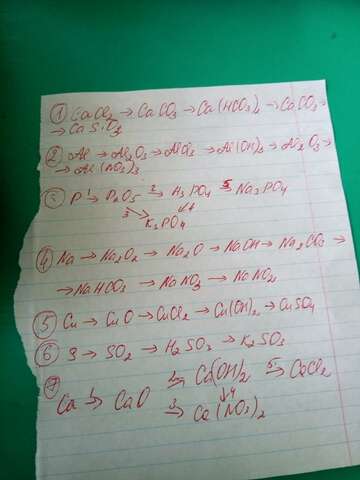 ① CaCl₂ → CaCO₃ → Ca(HCO₃)₂ → CaCO₃ →
→ CaSiO₃
② Al → Al₂O₃ → AlCl₃ → Al(OH)₃ → Al₂O₃ →
→ Al(NO₃)₃
③ P 1→ P₂O₅ 2→ H₃PO₄ 5→ Na₃PO₄
3↘ ↓4
K₃PO₄
④ Na → Na₂O₂ → Na₂O → NaOH → Na₂CO₃ →
→ NaHCO₃ → NaNO₃ → NaNO₂
⑤ Cu → CuO → CuCl₂ → Cu(OH)₂ → CuSO₄
⑥ S → SO₂ → H₂SO₃ → K₂SO₃
⑦ 2→ Ca(OH)₂ 5→ CaCl₂
Ca 1→ CaO ↓4
3→ Ca(NO₃)₂